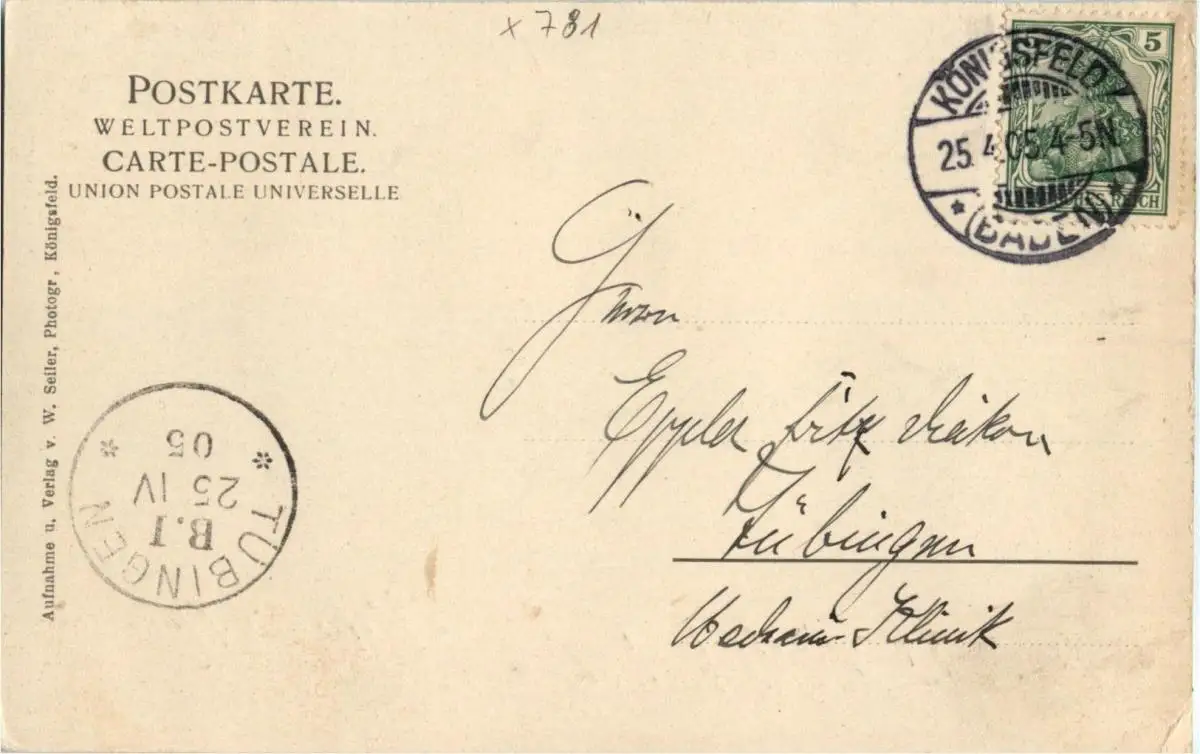 x 781
POSTKARTE.
WELTPOSTVEREIN.
CARTE-POSTALE.
UNION POSTALE UNIVERSELLE
5
REICH
KÖNIGSFELD
25.4.05.4-5N.
* (BADEN) *
Herrn
Eppler Fritz Diakon
Tübingen
Klinik
Aufnahme u. Verlag v. W. Seiler, Photogr., Königsfeld.
* TÜBINGEN *
B.1
25 IV
05